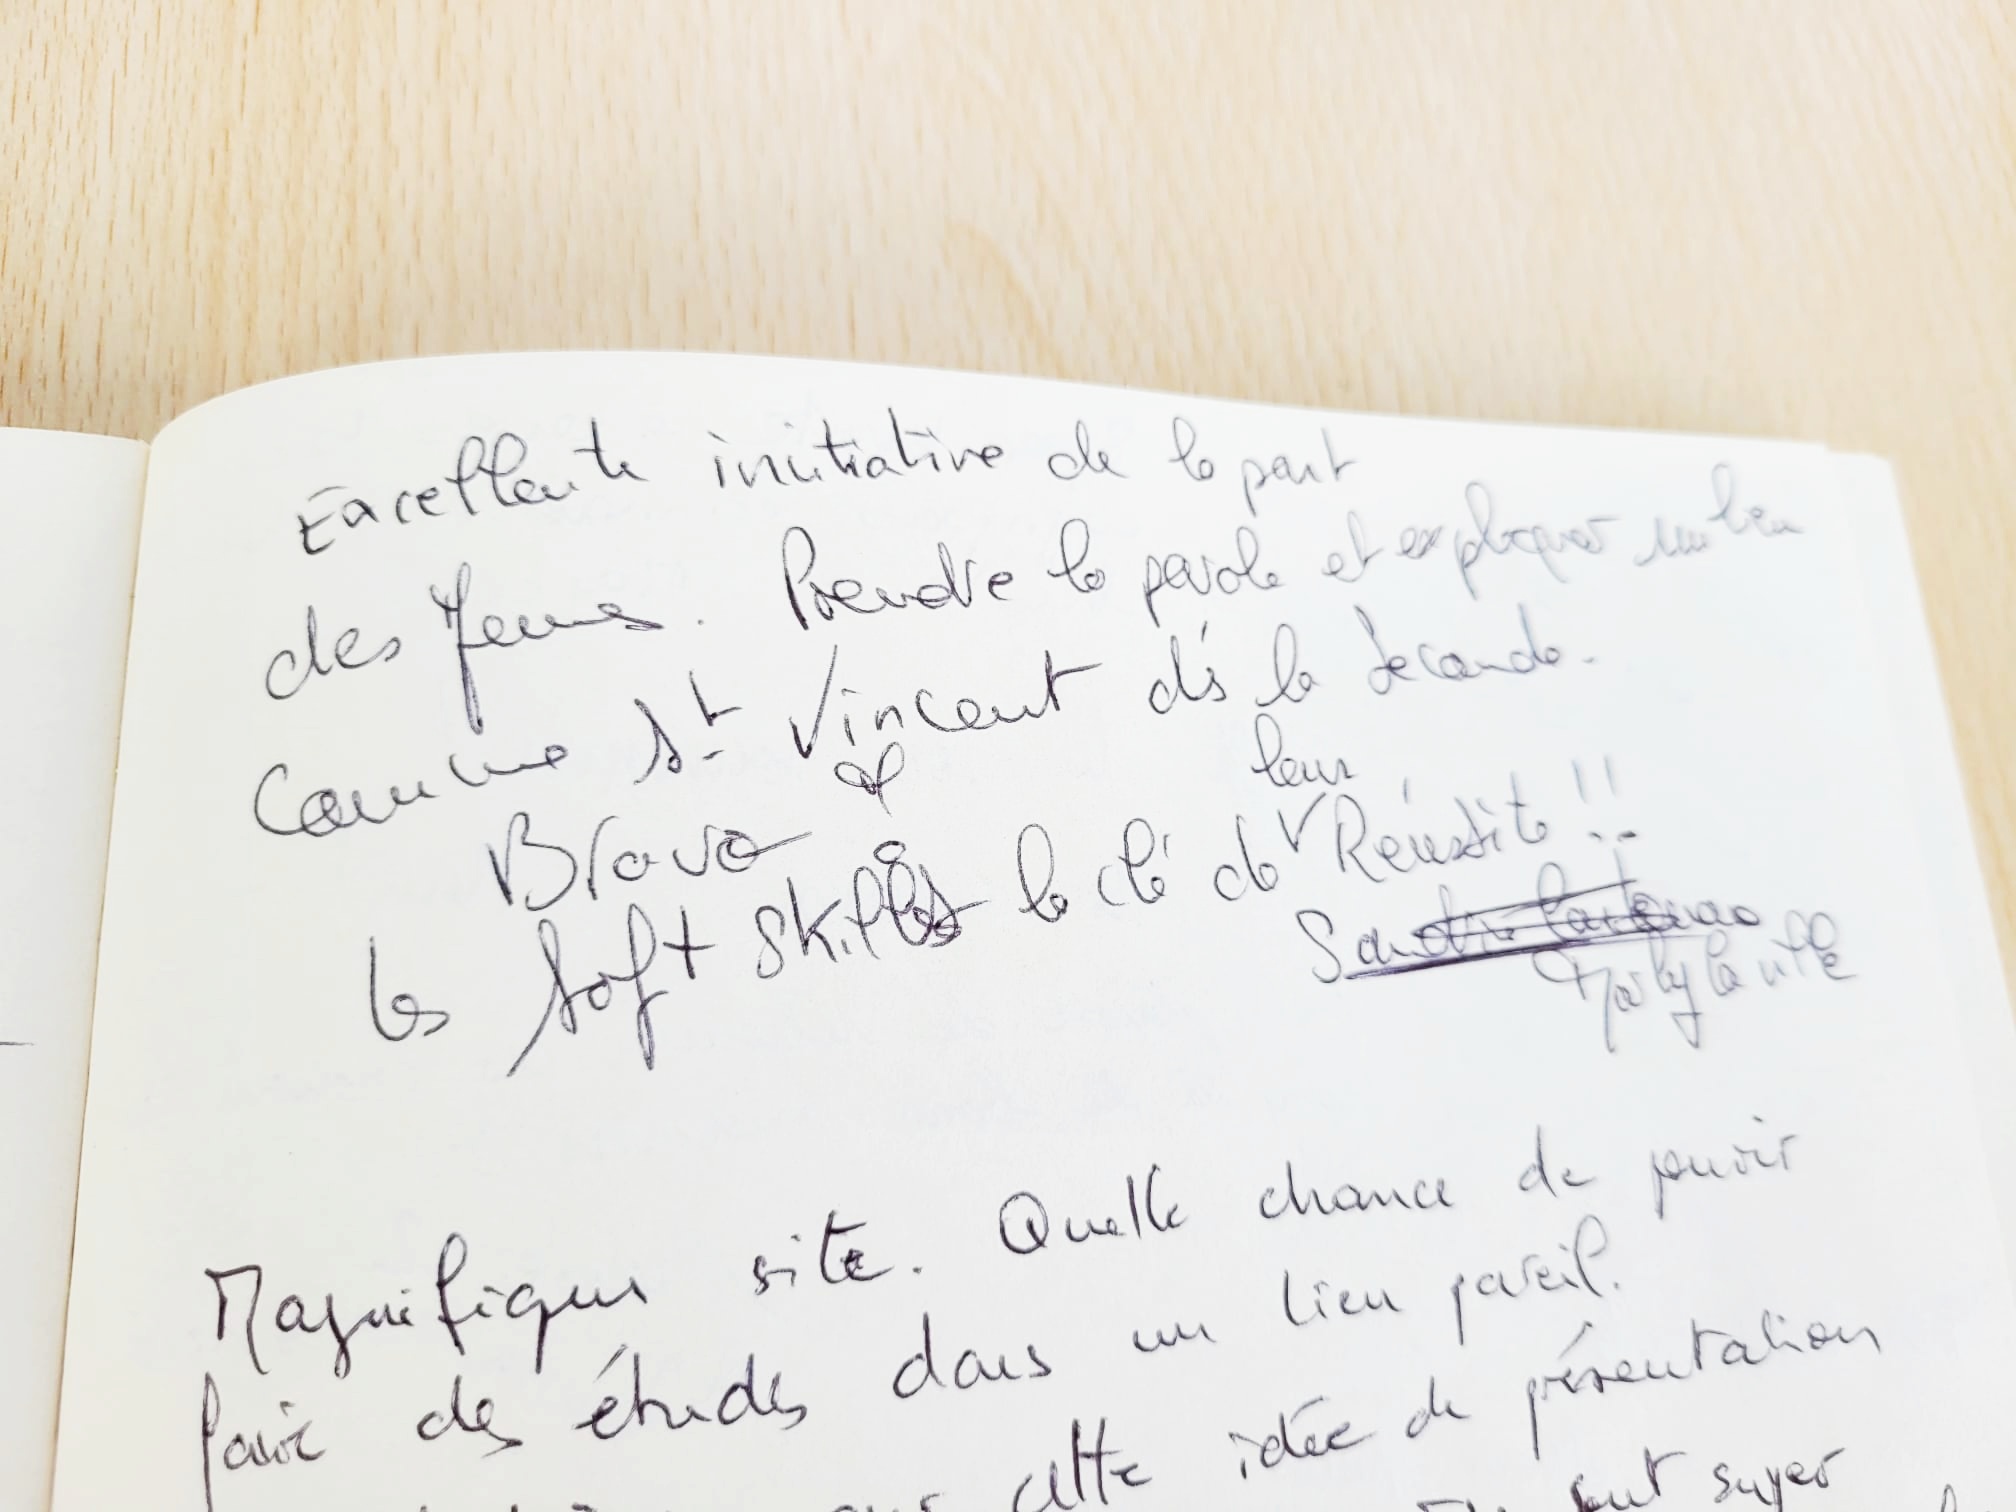 Excellente initiative de la part
des Jeunes. Prendre la parole et expliquer un lieu
comme St Vincent dès la seconde.
Bravo
leur
les soft skills la clé de Réussite !!
Marly la ville
Magnifique site. Quelle chance de pouvoir
faire des études dans un lieu pareil.
cette idée de présentation
sont super